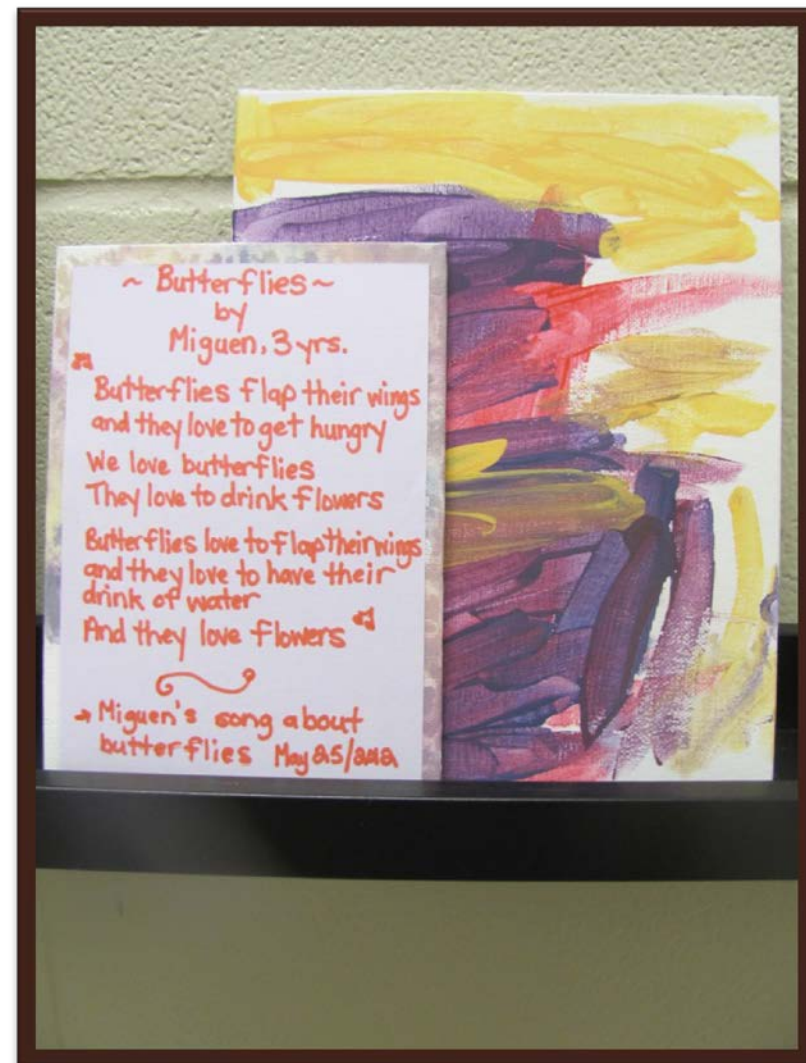 ~ Butterflies ~
by
Miguen, 3 yrs.
Butterflies flap their wings
and they love to get hungry
We love butterflies
They love to drink flowers
Butterflies love to flap their wings
and they love to have their
drink of water
And they love flowers
→ Miguen's song about
butterflies May 25/